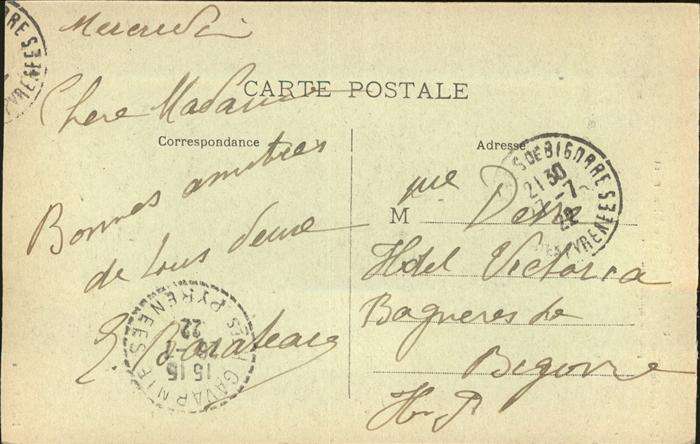 Mercredi
CARTE POSTALE
Chere Madame
Correspondance
Bonnes amities
de tous deux
Adresse
Mme
Hotel Victoria
Bagneres de
Bigorre
Hes P.
S DE BIGORRE
21 30
-7
22
TES PYRENEES
GAVARNIE
15 15
22
TES PYRENEES
RRE S
PYRENEES